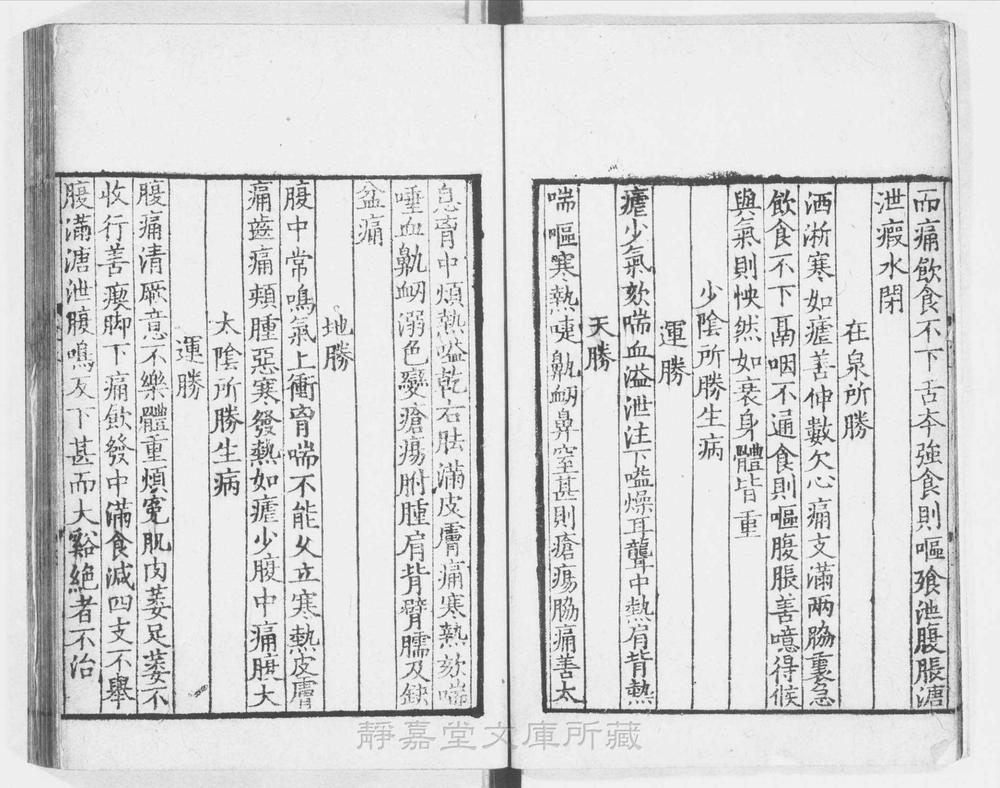 而痛飲食不下舌本強食則嘔飱泄腹脹溏
泄瘕水閉
在泉所勝
洒淅寒如瘧善伸數欠心痛支滿兩脇裏急
飲食不下鬲咽不通食則嘔腹脹善噫得候
與氣則怏然如衰身體皆重
少陰所勝生病
運勝
瘧少氣欬喘血溢泄注下嗌燥耳聾中熱肩背熱
天勝
喘嘔寒熱嚏鼽衂鼻窒甚則瘡瘍脇痛善太
息胷中煩熱嗌乾右胠滿皮膚痛寒熱欬喘
唾血鼽衂溺色變瘡瘍胕腫肩背臂臑及缺
盆痛
地勝
腹中常鳴氣上衝胷喘不能久立寒熱皮膚
痛齒痛頰腫惡寒發熱如瘧少腹中痛腹大
太陰所勝生病
運勝
腹痛清厥意不樂體重煩寃肌肉萎足萎不
收行善瘈脚下痛飲發中滿食減四支不舉
腹滿溏泄腹鳴反下甚而大谿絶者不治
靜嘉堂文庫所藏